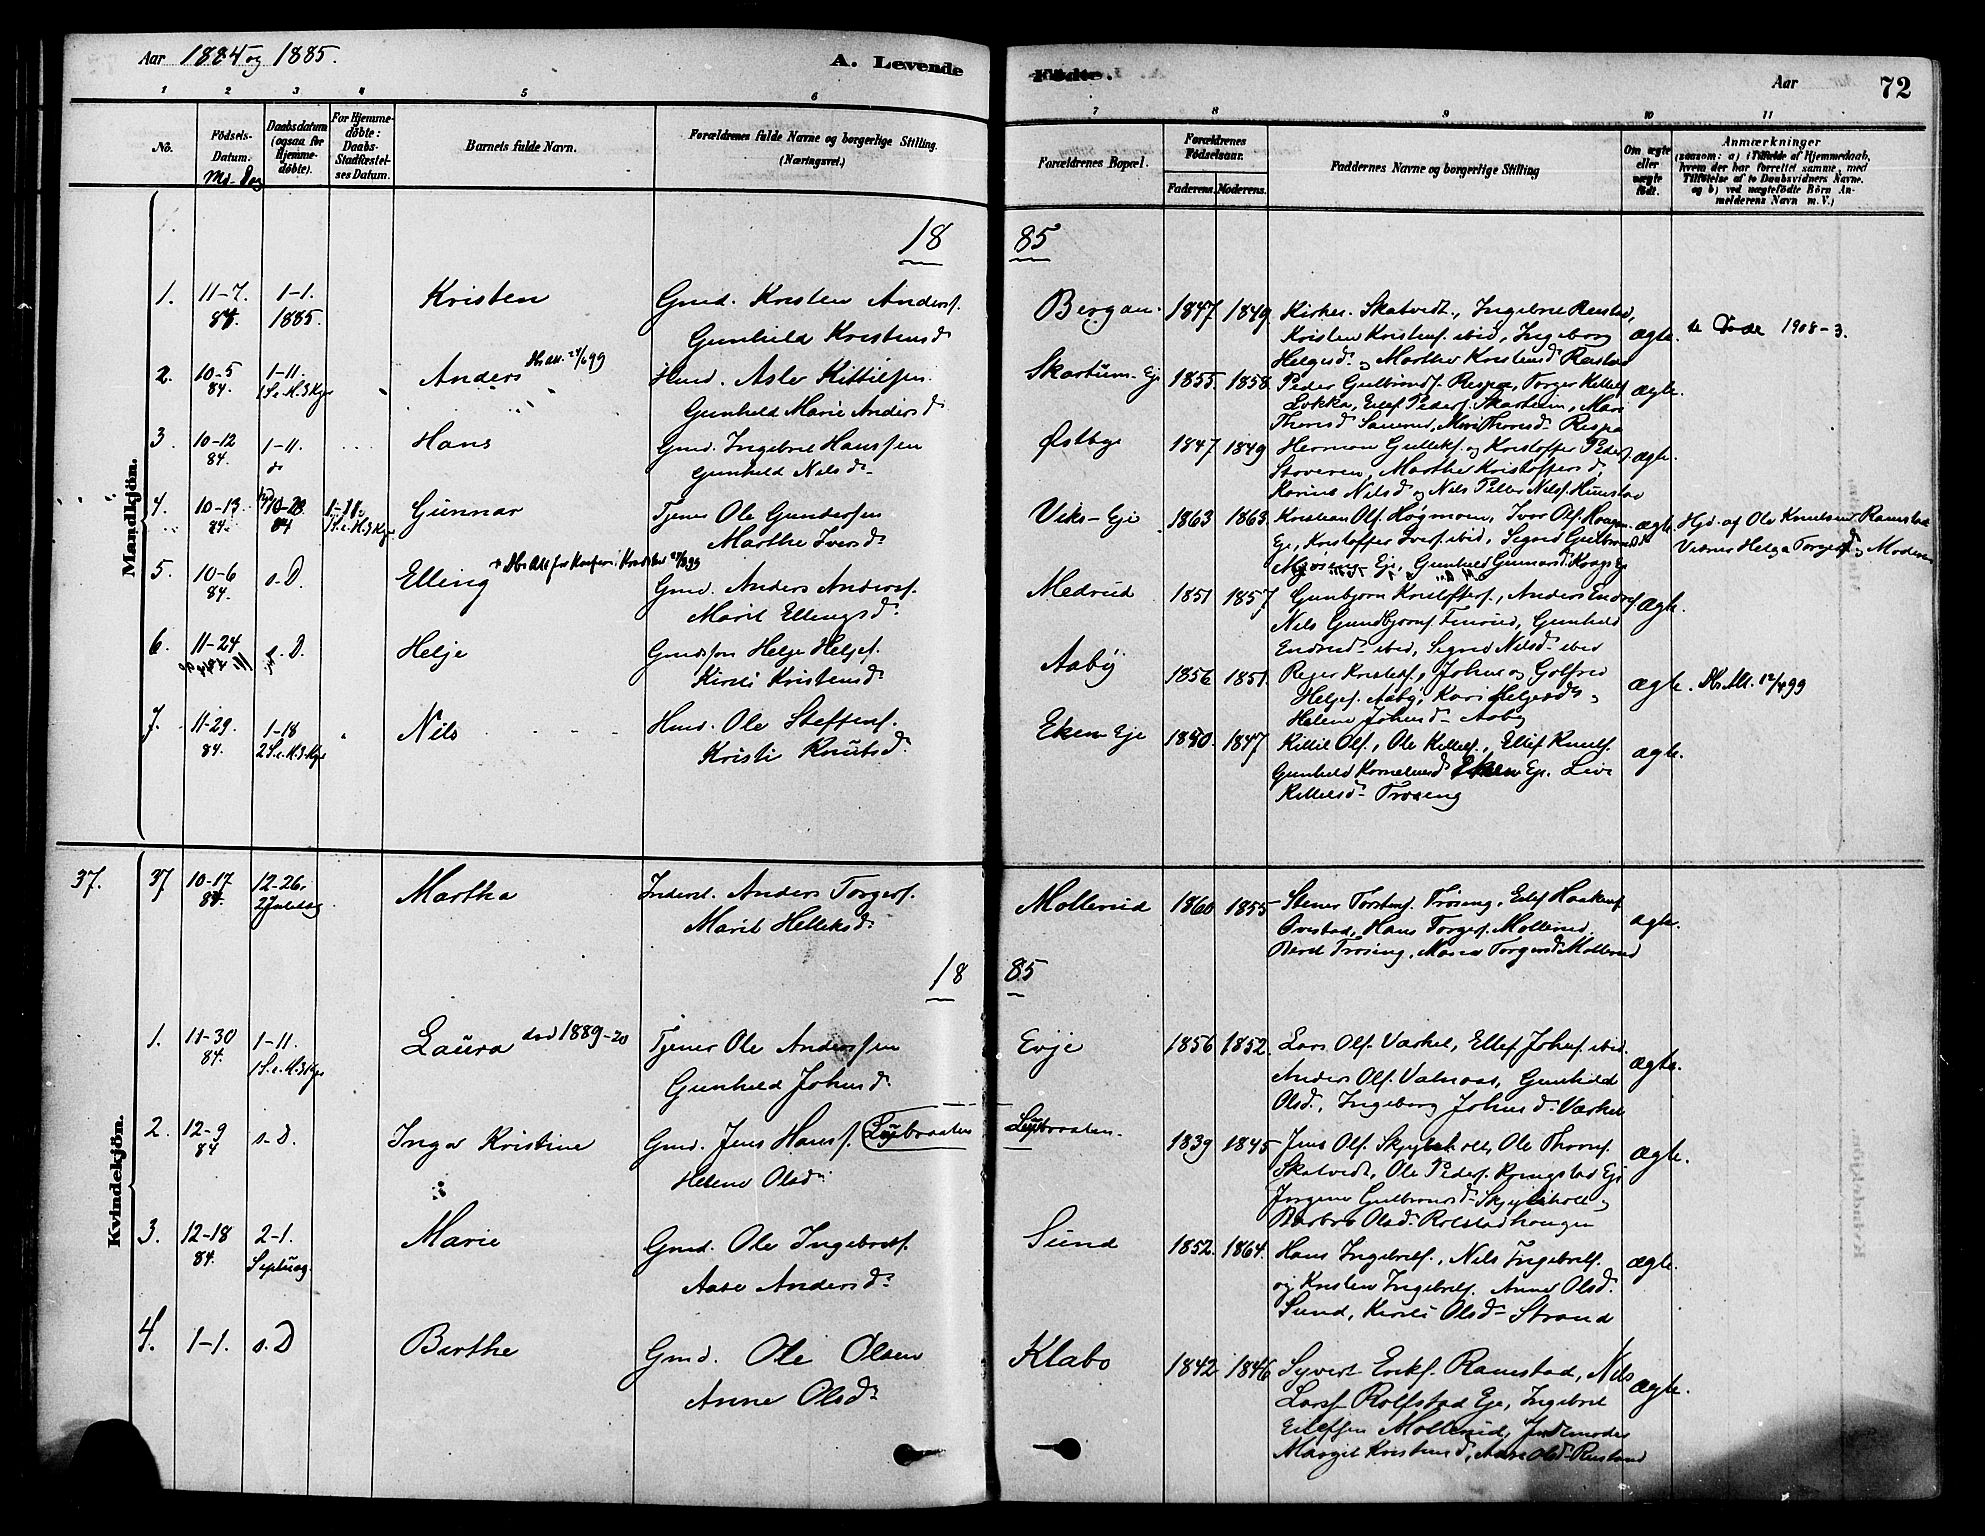 Aar 1884 og 1885.
A. Levende
Födte.
Aar
72
1
2
3
4
5
6
7
8
9
10
11
No.
Födsels-
Datum.
Md. Dag
Daabsdatum
(ogsaa for
Hjemme-
döbte).
For Hjemme-
döbte:
Daabs-
Stadfæstel-
ses Datum.
Barnets fulde Navn.
Forældrenes fulde Navne og borgerlige Stilling.
(Næringsvei.)
Forældrenes Bopæl.
Forældrenes
Födselsaar.
Faderens.
Moderens.
Faddernes Navne og borgerlige Stilling
Om ægte
eller
uægte
födt.
Anmærkninger
(saasom: a) i Tilfælde af Hjemmedaab,
hvem der har forrettet samme, med
Tilföielse af to Daabsvidners Navne.
og b) ved uægtefödte Börn An-
melderens Navn m. V.)
Mandkjön.
18 85
1. 11-7. 84. 1-1. 1885. Kristen
Gmd. Kristen Andersf.
Gunhild Kristensd.
Bergan. 1847 1849.
Kirkes. Skatvedt, Ingebret Renstad,
Kristen Kristenf. ibid, Ingeborg
Helgesd. og Marthe Kristensd. Renstad
ægte.
1908-3.
2. 10-5 84. 1-11. 1 S.e.H.3Kgr. Anders
Hmd. Asle Kittilsen.
Gunhild Marie Andersd.
Skartum-Eje 1855 1858.
Peder Gulbrandf. Respa, Torger Kittilf.
Lokka, Ellef Pederf. Skartum, Mari
Thorsd. Mari Thorsd. Respa
ægte.
3. 10-12 84. 1-11. Hans
Gmd. Ingebret Hanssen
Gunhild Nilsd.
Østbye 1847 1849
Herman Gulleksf. og Kristoffer Pedersf.
Stoveren, Marthe Kristoffersd.
Karine Nilsd. og Nils Petter Nilsf.
ægte.
4. 10-13 84. 10-28 84 1-11. 1S.e.H.3Kgr Gunnar
Tjener Ole Gundersen
Marthe Iversd.
Viks-Eje 1863 1863.
Kristian Olf. Høgmoen, Iver Olf.
Eje, Kristoffer Iverf. ibid, Sigrid Gulbrandsd.
Eje, Gunhild Gunnarsd.
ægte.
Hjd. af Ole Knutsen Ramstad
Vidner Helga Torgersd. og Moderen
5. 10-6 84. s.D. Elling
Gmd. Anders Andersf.
Marit Ellingsd.
Medrud 1851 1857
Gunbjørn Kristoffersf., Anders Endref.
Nils Gundbjørnf. Finrud, Gunhild
Endresd. ibid, Sigrid Nilsd. ibid
ægte.
6. 11-24 s.D. Helje
Helje Heljef.
Kirsti Kristensd.
Aaby 1856 1851.
Johns og Golfred
Heljef. Aaby, Kari Heljesd. og
Helene Johnsd. Aaby
ægte.
Db.Att. 12/4 99
7. 11-29. 84. 1-18 2S.e.H.3.Kgr Nils
Hmd. Ole Steffensf.
Kristi Knutsd.
Eken-Eje 1850. 1847
Kittil Olf., Ole Kittilsf., Ellef Knutf.
Gunhild Eken Eje. Live
Kittelsd. Trøseng
ægte.
Kvindekjön.
37. 37 10-17 84. 12-26. 2Juledag Martha
Inderst. Anders Torgersf.
Marit Helleksd.
Mollerud 1860 1855
Stener Torstenf. Trøseng, Ellef Haakenf.
Ovestad, Hans Torgerf. Mollerud,
Berit Trøseng, Maria Torgersd. Mollerud
ægte.
18 85
1. 11-30 84. 1-11. 1S.e.H.3Kgr Laura død 1889-20
Tjener Ole Anderssen
Gunhild Johnsd.
Evje 1856 1852.
Lars Olf. Værkel, Ellef Johnf. ibid.
Anders Olf. Valnaas, Gunhild
Olsd., Ingeborg Johnsd. Værkel
ægte.
2. 12-9 84 s.D. Inga Kristine
Gmd. Jens Hansf. Lybraaten
Helene Olsd.
Lybraaten. 1839 1845
Jens Olf. Ole Thronf.
Skatvedt, Ole Pederf. Ringstad Eje
Jørgine Gulbransd. og
Barbro Olsd. Rolstadhougen
ægte.
3. 12-18 84. 2-1. Septuag. Marie
Gmd. Ole Ingebretf.
Aase Andersd.
Sund 1852. 1864.
Hans Ingebretf., Nils Ingebretf.
og Kristen Ingebretf. Anne Olsd.
Sund, Kirsti Olsd. Strand
ægte.
4. 1-1. s.D Berthe
Gmd. Ole Olsen
Anne Olsd.
Klabo 1842 1846
Syvert Erikf. Ramstad, Nils
Larsf. Rolfstad Eje, Ingebret
Eilefsen Mollerud, Jordemoder
Margit Kristensd., Anne Olsd. Rustand
ægte.